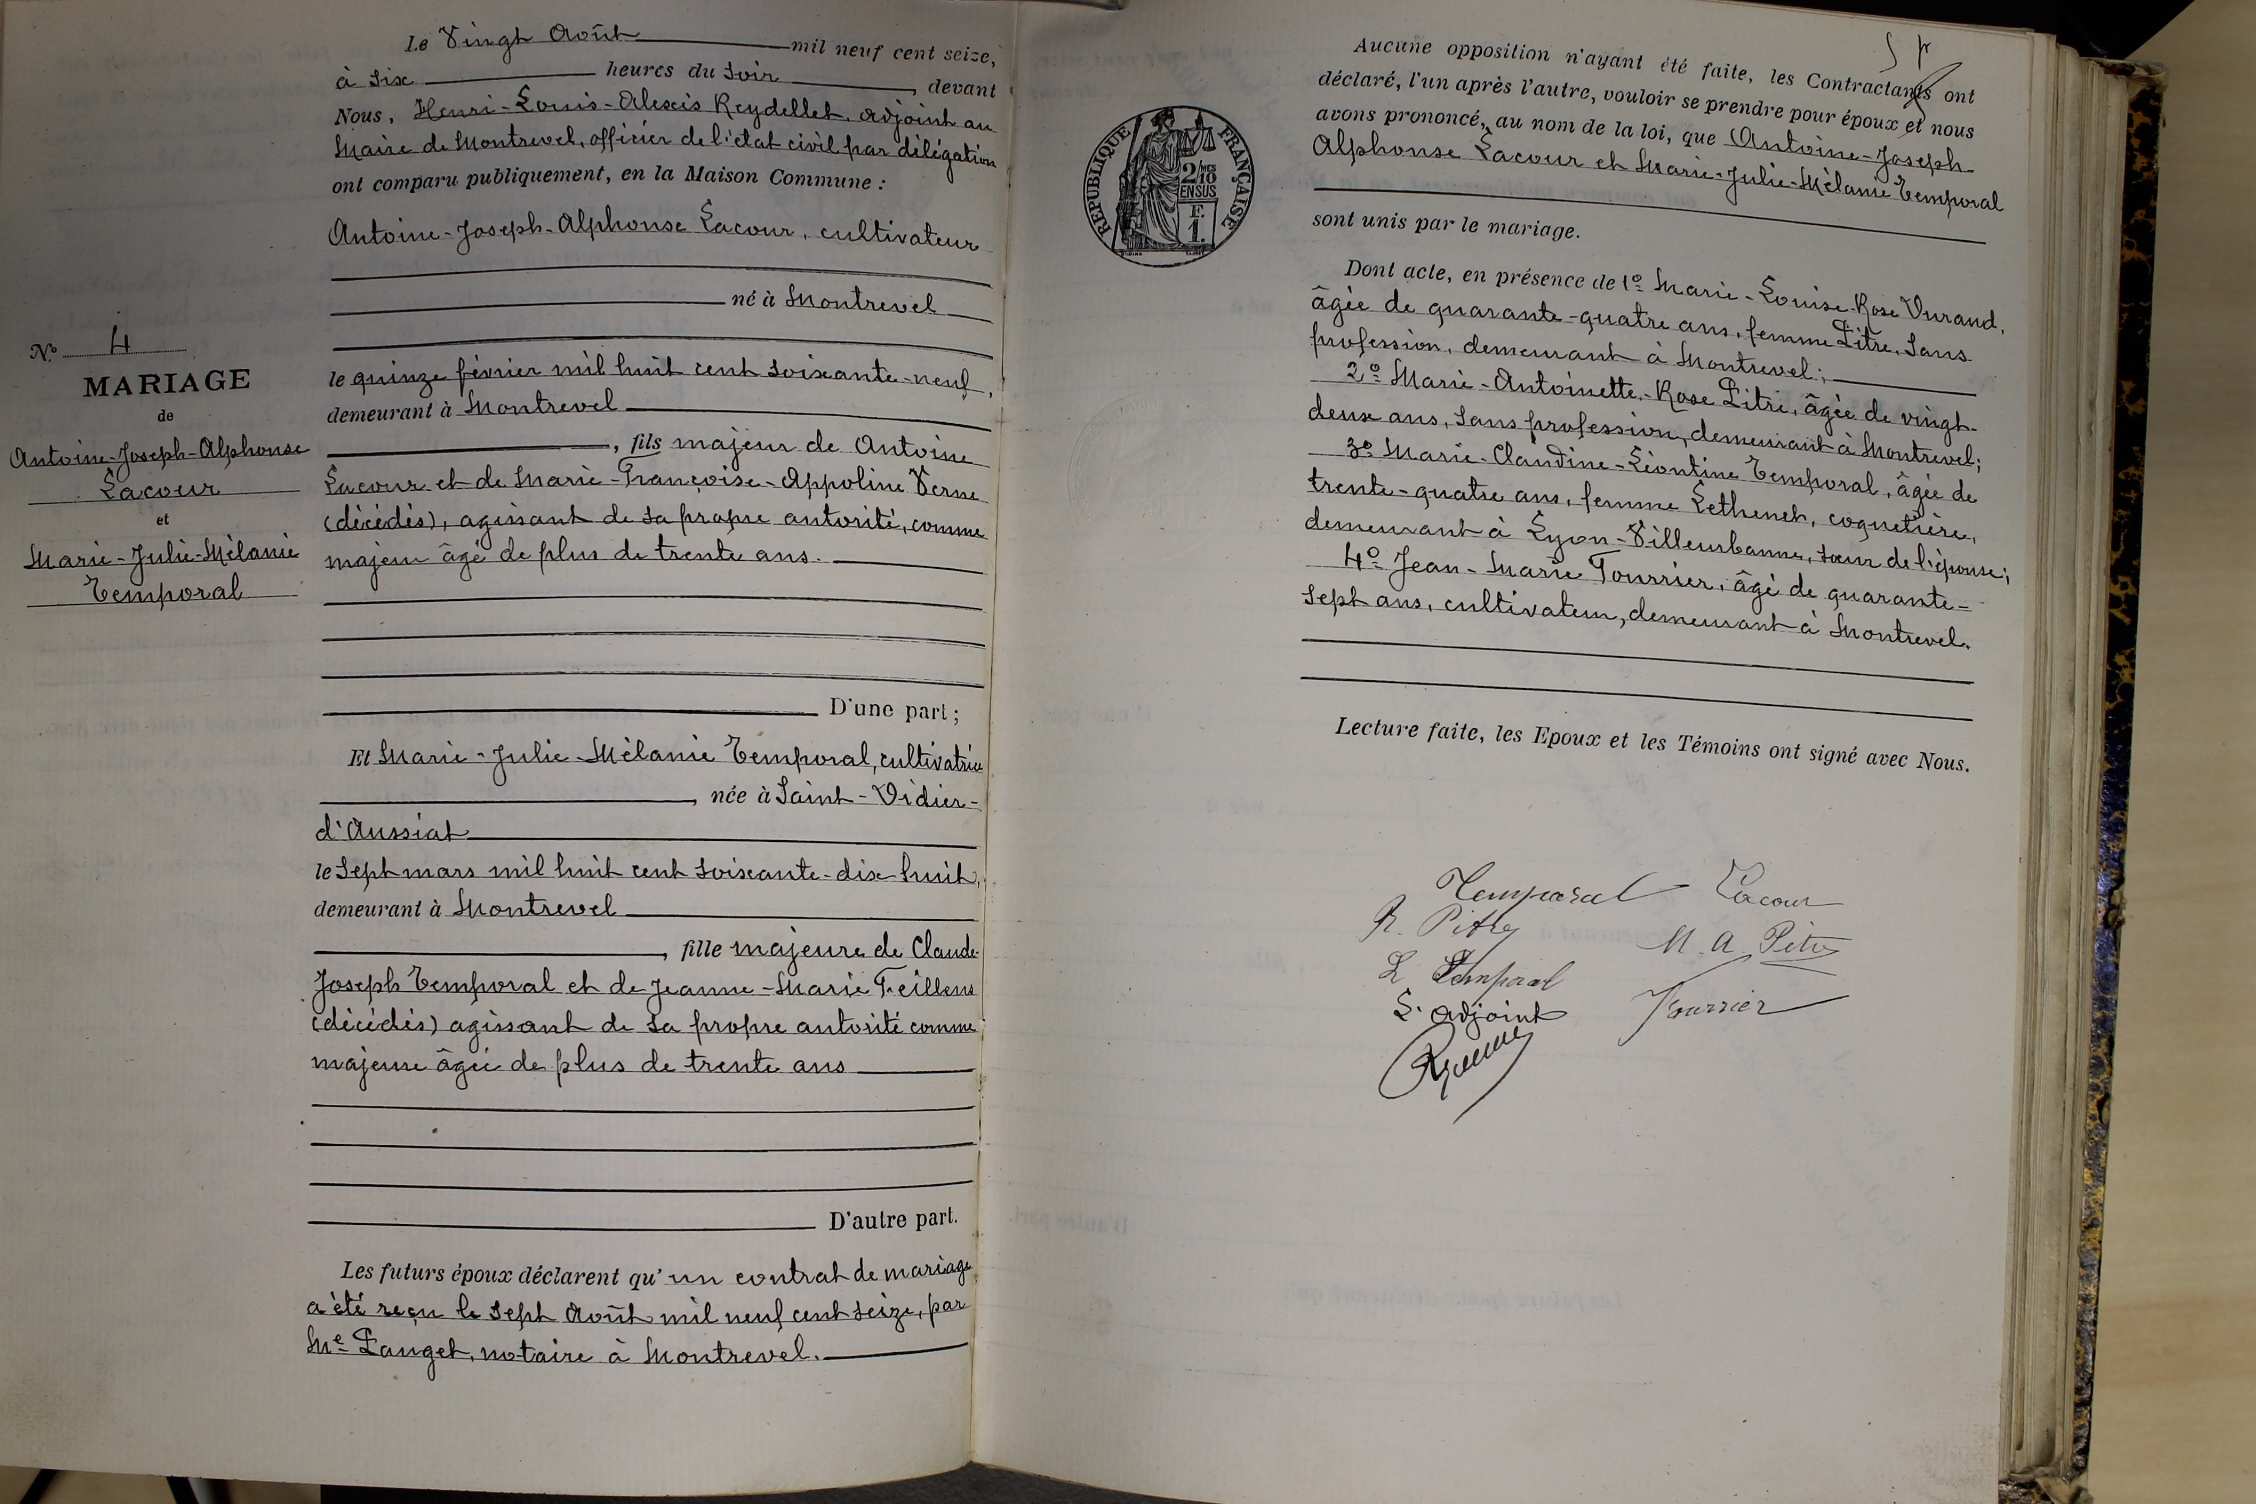 Le Vingt Août mil neuf cent seize,
à six heures du soir, devant
Nous, Henri-Louis-Alexis Reydellet, adjoint au
Maire de Montrevel, officier de l'état civil par délégation
ont comparu publiquement, en la Maison Commune :
Antoine-Joseph-Alphonse Lacour, cultivateur
né à Montrevel
le quinze février mil huit cent soixante-neuf,
demeurant à Montrevel
, fils majeur de Antoine
Lacour et de Marie-Françoise-Appoline Verne
(décédés), agissant de sa propre autorité, comme
majeur âgé de plus de trente ans.
D'une part ;
Et Marie-Julie-Mélanie Temporal, cultivatrice
, née à Saint-Didier-
d'Aussiat
le sept mars mil huit cent soixante-dix huit,
demeurant à Montrevel
, fille majeure de Claude-
Joseph Temporal et de Jeanne-Marie Feillens
(décédés) agissant de sa propre autorité comme
majeure âgée de plus de trente ans
D'autre part.
Les futurs époux déclarent qu'un contrat de mariage
a été reçu le sept Août mil neuf cent seize, par
Me Panget, notaire à Montrevel.
No 4
MARIAGE
de
Antoine-Joseph-Alphonse
Lacour
et
Marie-Julie-Mélanie
Temporal
RÉPUBLIQUE FRANÇAISE
2/10 MES
EN SUS
F.
1.
Aucune opposition n'ayant été faite, les Contractants ont
déclaré, l'un après l'autre, vouloir se prendre pour époux et nous
avons prononcé, au nom de la loi, que Antoine-Joseph-
Alphonse Lacour et Marie-Julie-Mélanie Temporal
sont unis par le mariage.
Dont acte, en présence de 1o Marie-Louise-Rose Durand,
âgée de quarante-quatre ans, femme Pitre, sans
profession, demeurant à Montrevel ;
2o Marie-Antoinette-Rose Pitre, âgée de vingt-
deux ans, sans profession, demeurant à Montrevel ;
3o Marie-Claudine-Léontine Temporal, âgée de
trente-quatre ans, femme Lethenet, coquetière,
demeurant à Lyon-Villeurbanne, sœur de l'épouse ;
4o Jean-Marie Fourrier, âgé de quarante-
sept ans, cultivateur, demeurant à Montrevel.
Lecture faite, les Epoux et les Témoins ont signé avec Nous.
Temporal Lacour
R. Pitre
M. A. Pitre
L Temporal
L'adjoint
Fourrier